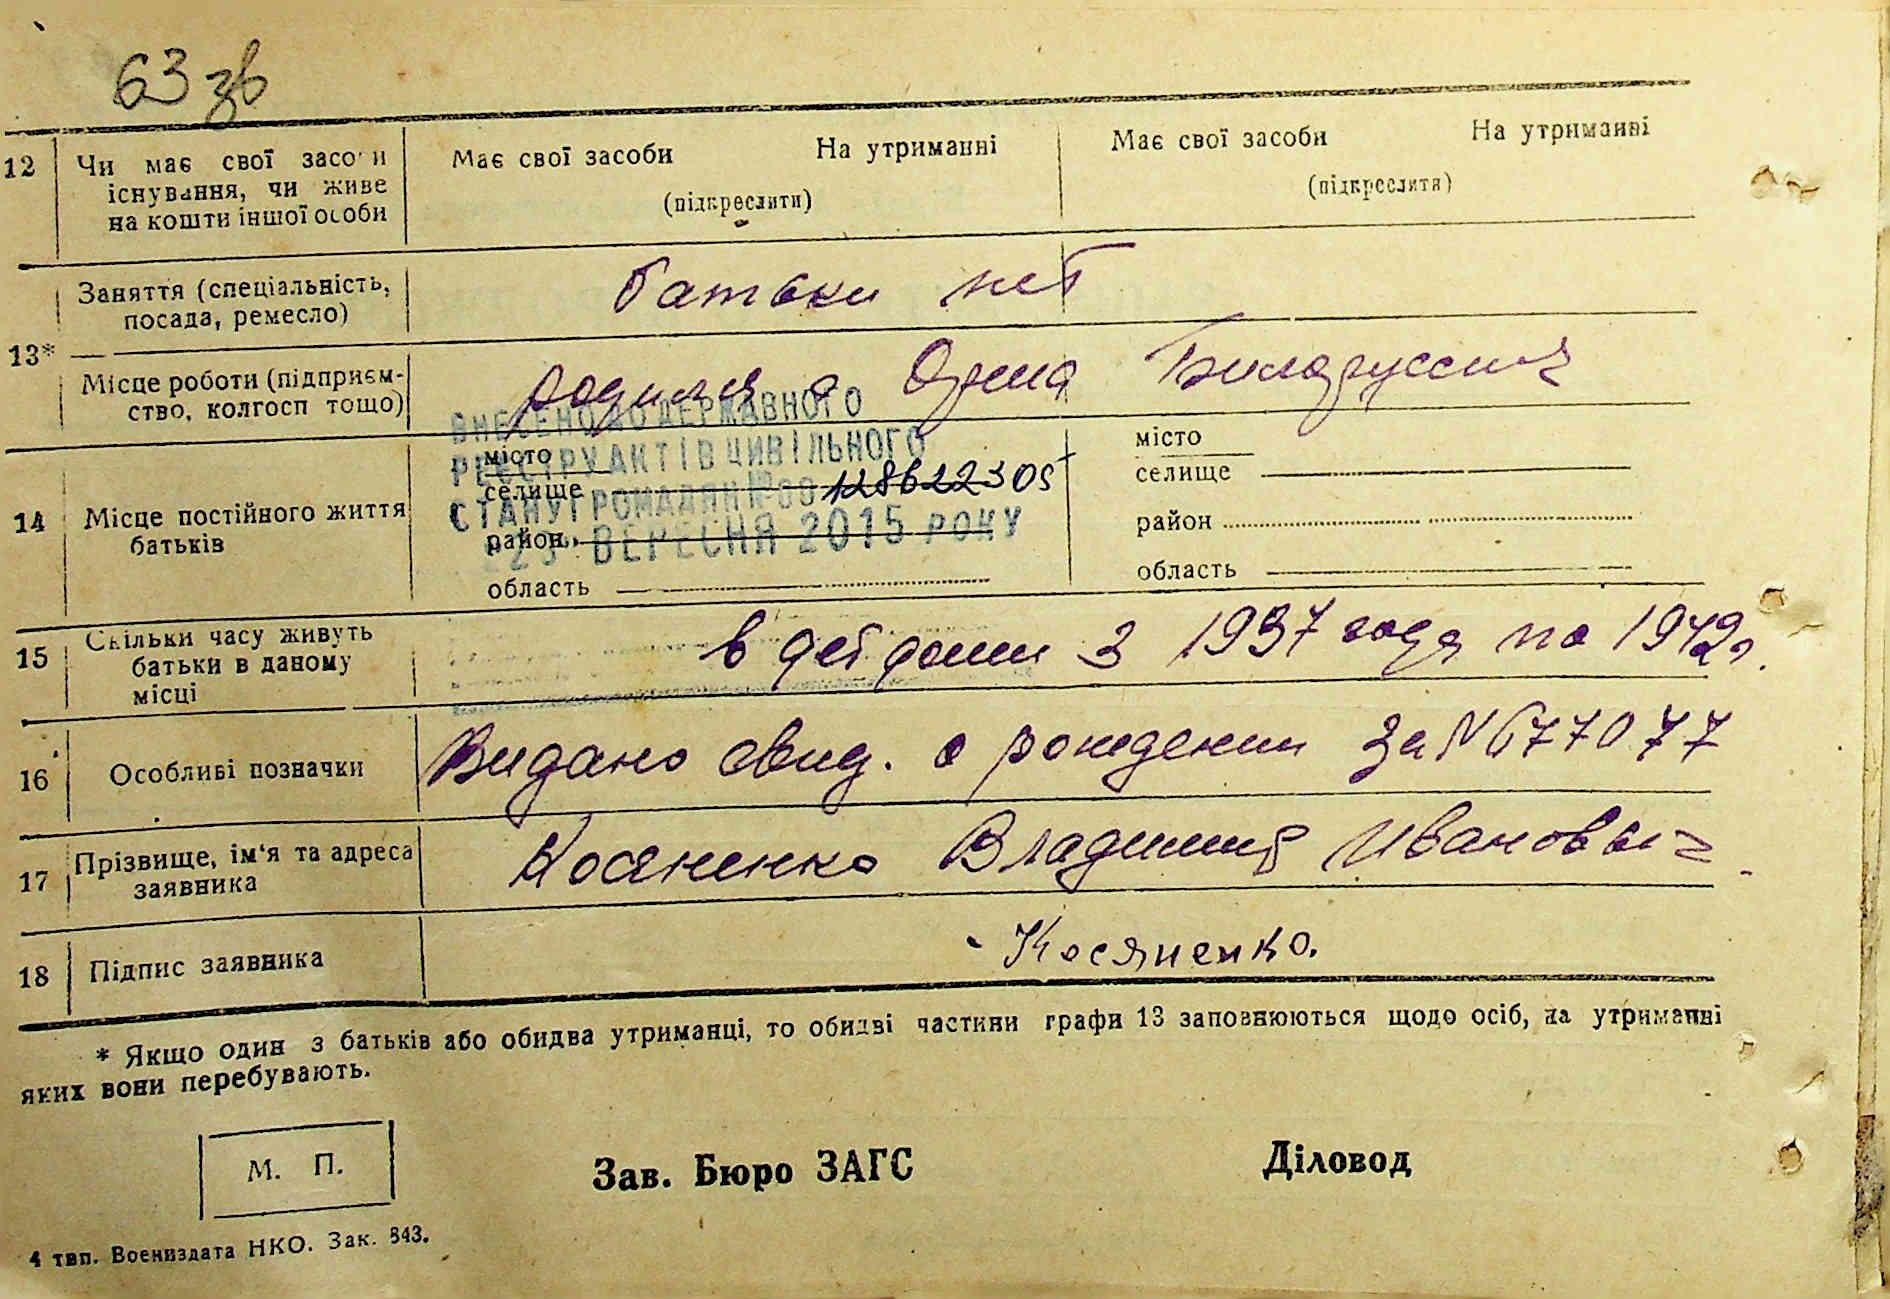 63 зв
12 Чи має свої засоби існування, чи живе на кошти іншої особи
Має свої засоби На утриманні
(підкреслити)
Має свої засоби На утриманні
(підкреслити)
13*
Заняття (спеціальність, посада, ремесло)
батьки нет
Місце роботи (підприємство, колгосп тощо)
родился
14 Місце постійного життя батьків
місто
селище
район
область
місто
селище
район
область
ВНЕСЕНО ДО ДЕРЖАВНОГО
РЕЄСТРУ АКТІВ ЦИВІЛЬНОГО
СТАНУ ГРОМАДЯН № 00 128622305
ВЕРЕСНЯ 2015 РОКУ
15 Скільки часу живуть батьки в даному місці
в дет доми з 1937 года по 1942 г.
16 Особливі позначки
Видано свид. о рождении за N 677077
17 Прізвище, ім'я та адреса заявника
Косяненко Владимир Иванович
18 Підпис заявника
Косяненко.
* Якщо один з батьків або обидва утриманці, то обидві частини графи 13 заповнюються щодо осіб, на утриманні
яких вони перебувають.
М. П.
Зав. Бюро ЗАГС
Діловод
4 тип. Воениздата НКО. Зак. 843.